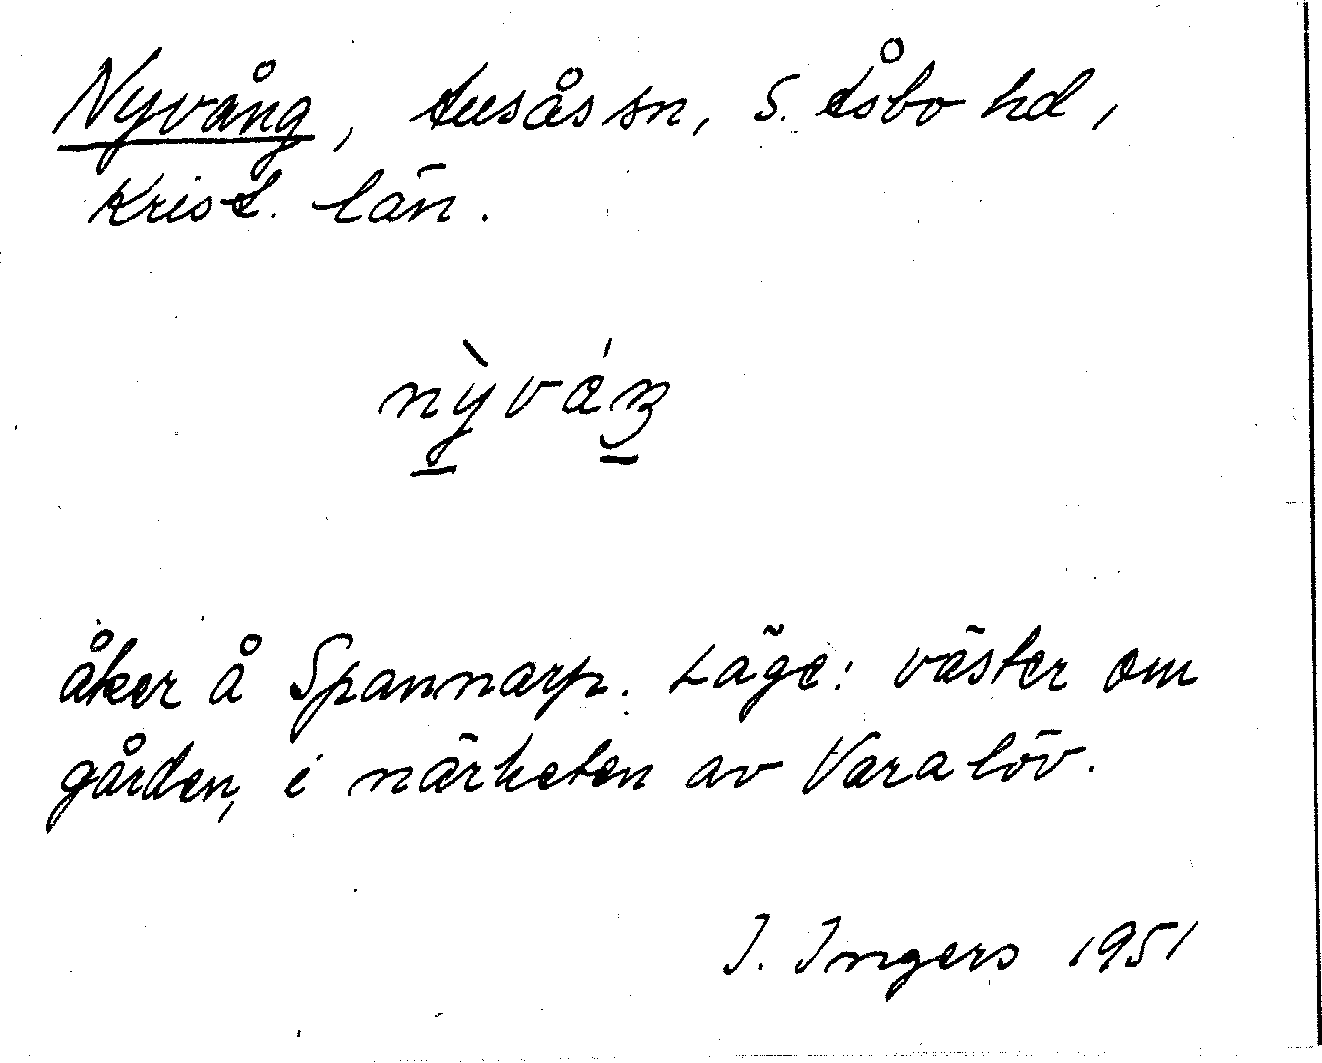 Nyvång, Ausås sn, S. Åsbo hd,
Krist. län.
åker å Spannarp. Läge: väster om
gården, i närheten av Varalöv.
I. Ingers 1951